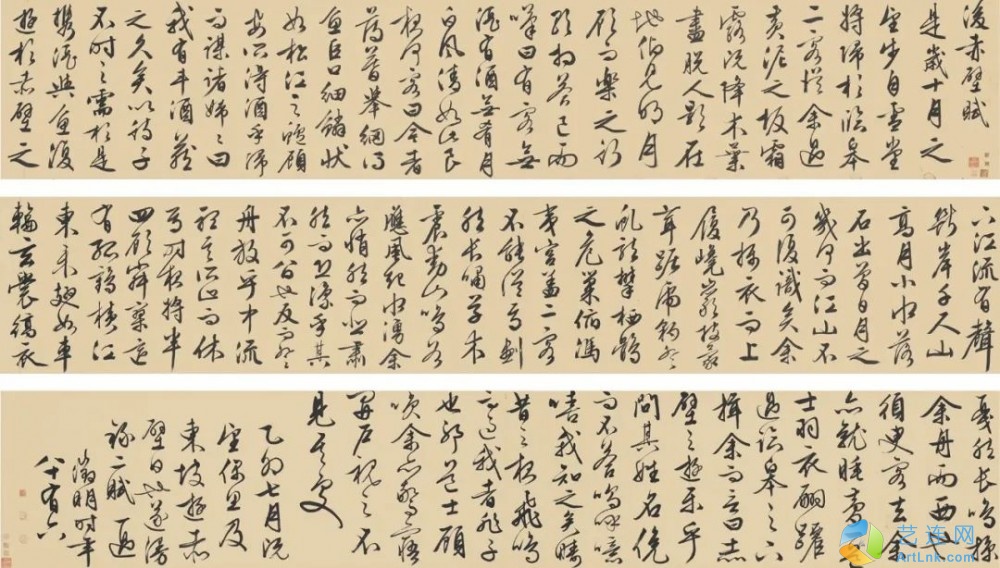 後赤壁賦
是歲十月之
望步自雪堂
將歸於臨皋
二客從余過
黃泥之坂霜
露既降木葉
盡脫人影在
地仰見明月
顧而樂之行
歌相答已而
嘆曰有客無
酒有酒無肴月
白風清如此良
夜何客曰今者
薄暮舉網得
魚巨口細鱗狀
如松江之鱸顧
安所得酒乎歸
而謀諸婦婦曰
我有斗酒藏
之久矣以待子
不時之需於是
攜酒與魚復
遊於赤壁之
下江流有聲
斷岸千尺山
高月小水落
石出曾日月之
幾何而江山不
可復識矣余
乃攝衣而上
履巉巖披蒙
茸踞虎豹登
虬龍攀栖鶻
之危巢俯馮
夷宮蓋二客
不能從焉劃
然長嘯草木
震動山鳴谷
應風起水湧余
亦悄然而悲肅
然而恐凜乎其
不可留也反而登
舟放乎中流
聽其所止而休
焉時夜將半
四顧寂寥適
有孤鶴橫江
東來翅如車
輪玄裳縞衣
戛然長鳴掠
余舟而西也
須臾客去余
亦就睡夢一道
士羽衣翩躚
過臨皋之下
揖余而言曰赤
壁之遊樂乎
問其姓名俛
而不答嗚呼噫
嘻我知之矣疇
昔之夜飛鳴
而過我者非子
也耶道士顧
笑余亦驚寤
開戶視之不
見其處
乙卯七月既
望偶及
東坡遊赤
壁日也遂漫
錄二賦一過
徵明時年
八十有六
艺连网
ArtLink.com